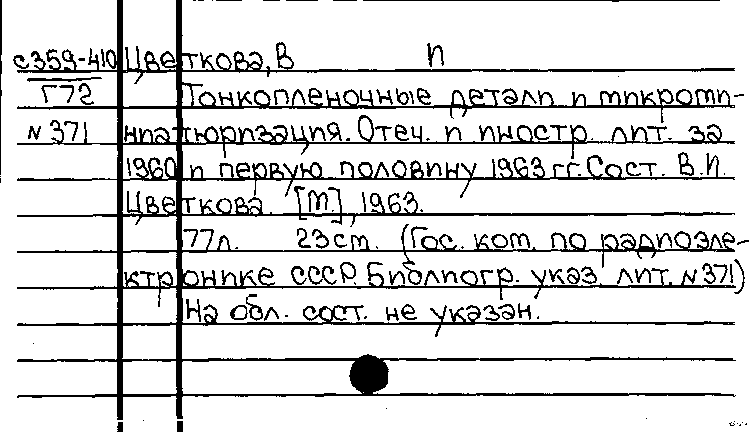 с359-410 Цветкова, В И
Г72 Тонкопленочные детали и микроми-
N371 ниатюризация. Отеч. и иностр. лит. за
1960 и первую половину 1963 гг. Сост. В.И.
Цветкова. [М.], 1963.
77л. 23см. (Гос. ком. по радиоэле-
ктронике СССР. Библиогр. указ. лит. N371)
На обл. сост. не указан.